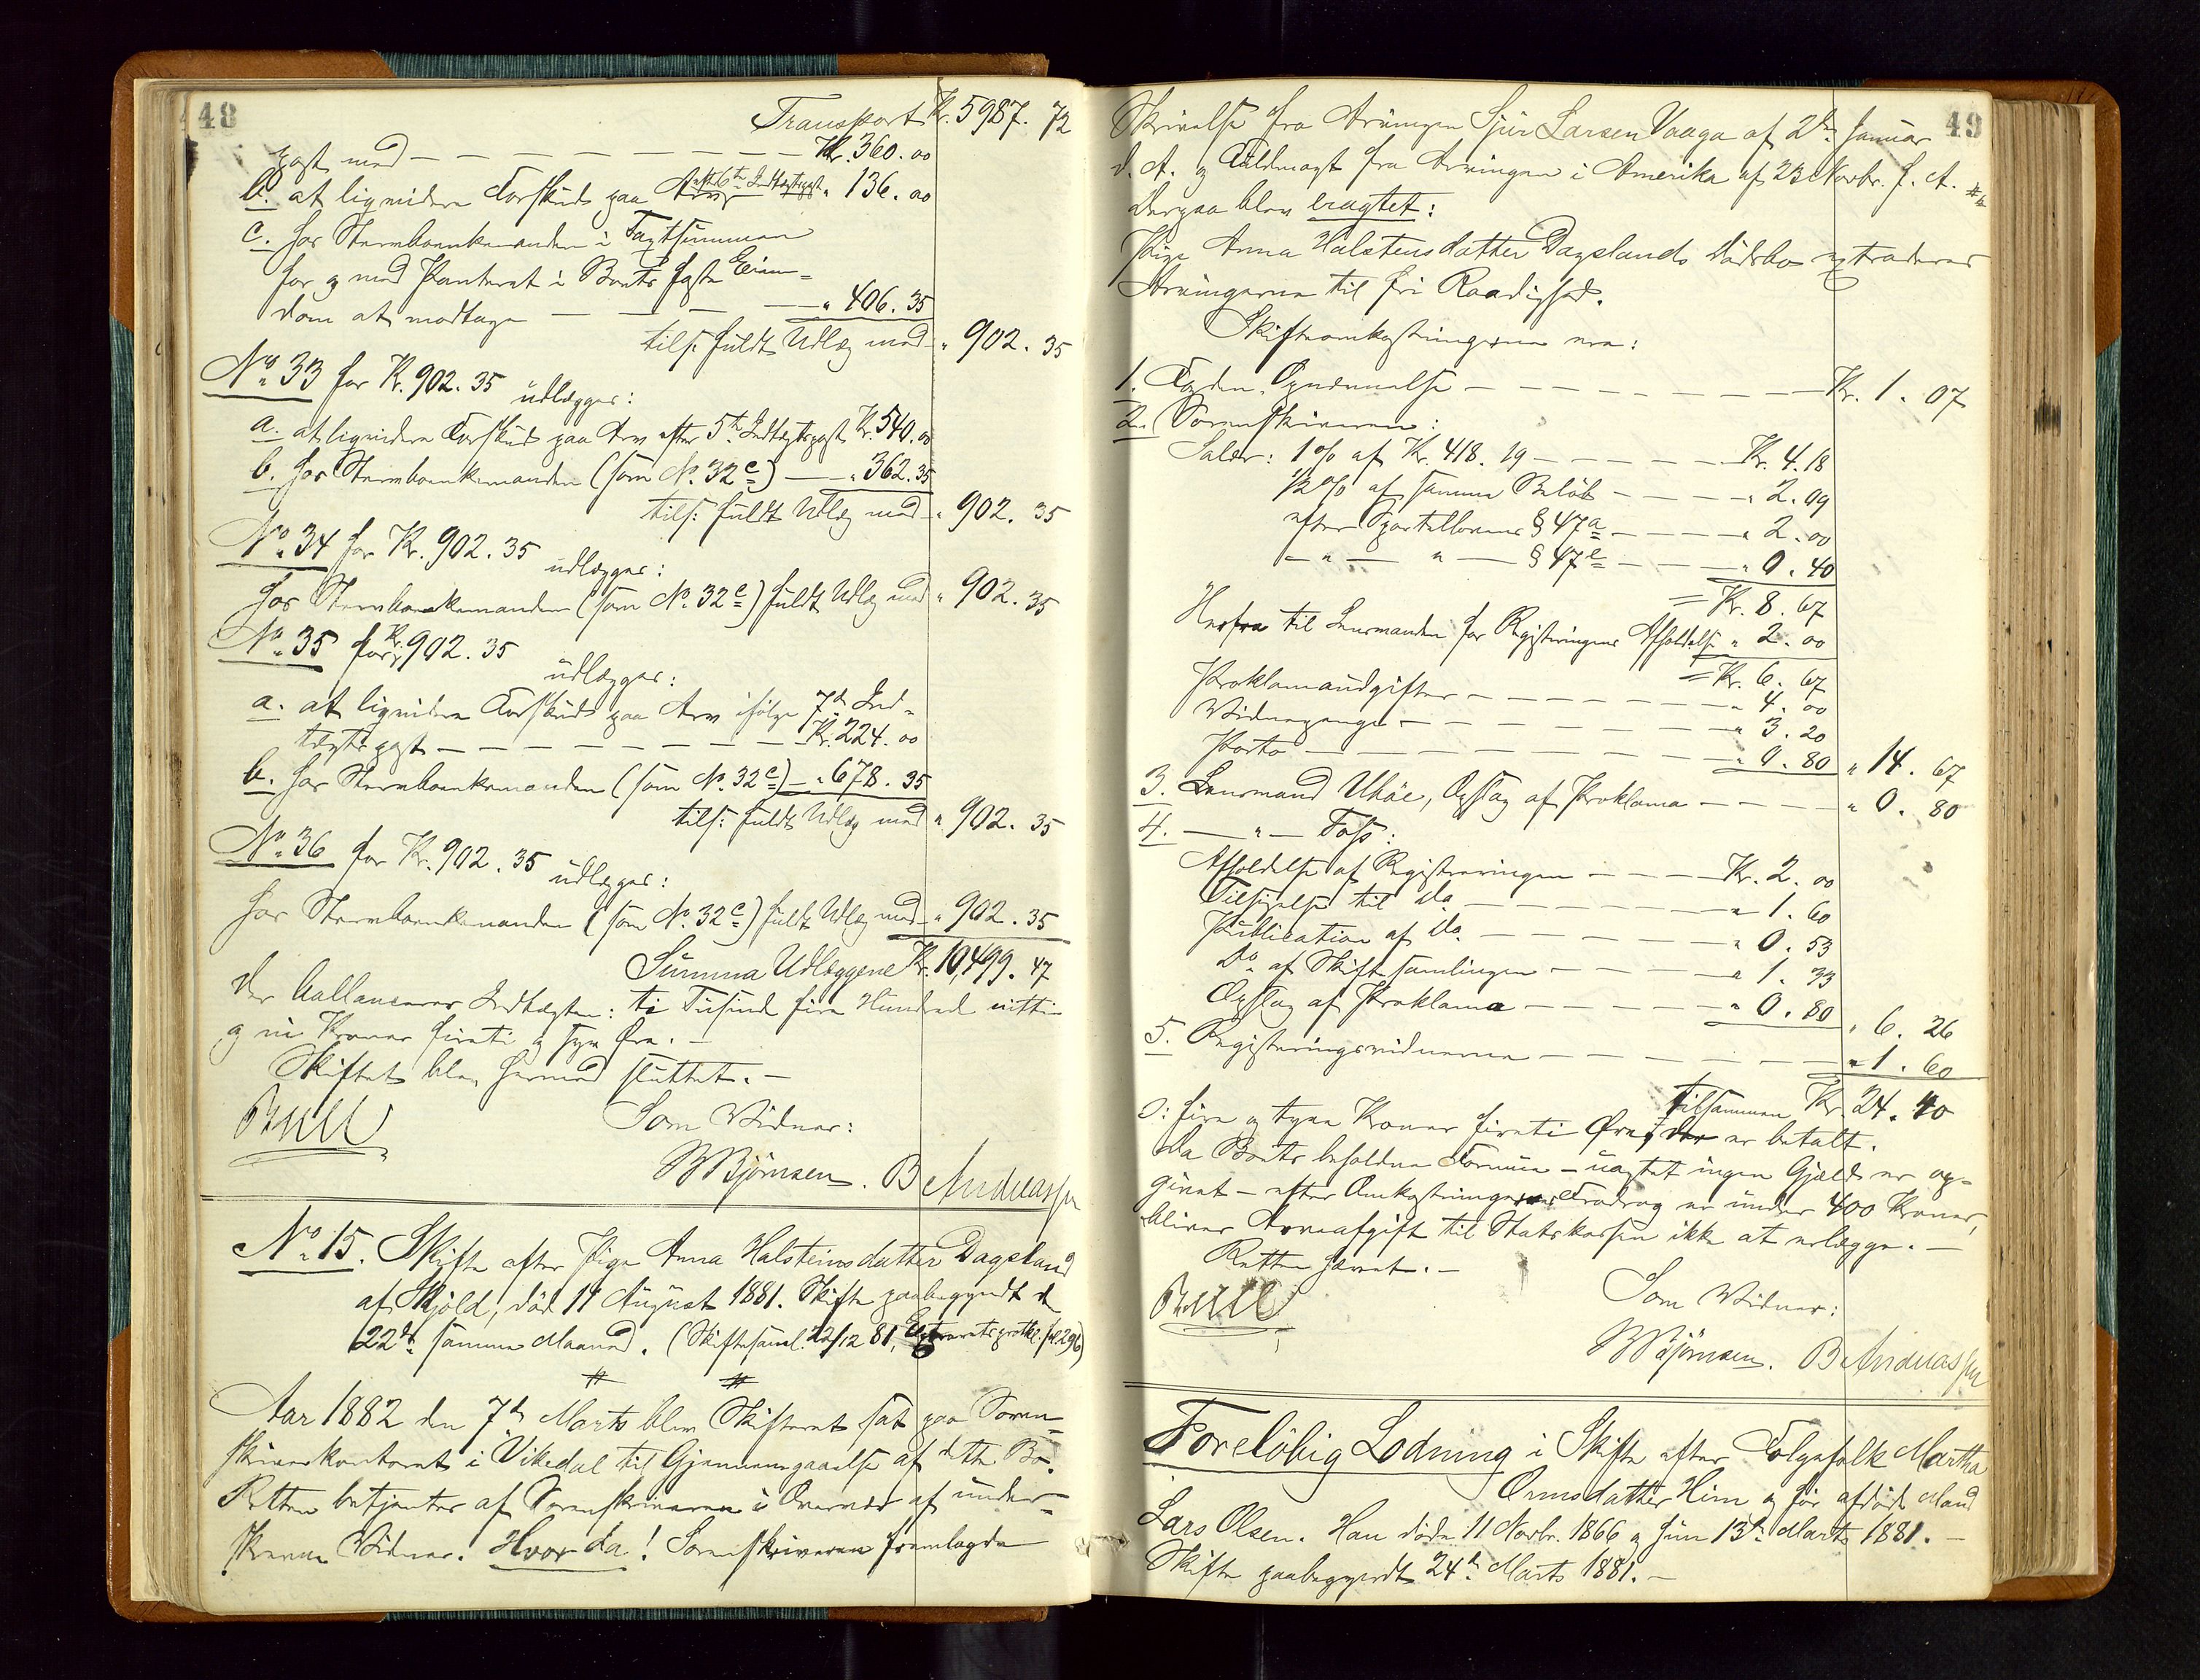 48
Transport Kr. 5987. 72
post med — Kr. 360. 00
b. at liqvidere Forskud paa Arv efter 6te Indtægtspost " 136. 00
c. hos Stervboenkemanden i Taxtsummen
for og med Panteret i Boets faste Eien=
dom at modtage — " 406. 35
tils. fuldt Udlæg med " 902. 35
No. 33 for Kr. 902. 35 udlægges:
a. at liqvidere Forskud paa Arv efter 5te Indtægtspost Kr. 540. 00
b. hos Stervboenkemanden (som No. 32 c) — " 362. 35
tils: fuldt Udlæg med " 902. 35
No. 34 for Kr. 902. 35 udlægges:
hos Stervboenkemanden (som No. 32 c) fuldt Udlæg med " 902. 35
No. 35 for Kr. 902. 35 udlægges:
a. at liqvidere Forskud paa Arv ifølge 7de Ind-
tægtspost — Kr. 224. 00
b. hos Stervboenkemanden (som No. 32 c) — " 678. 35
tils: fuldt Udlæg med " 902. 35
No. 36 for Kr. 902. 35 udlægges:
hos Stervboenkemanden (som No. 32 c) fuldt Udlæg med " 902. 35
Summa Udlæggene Kr. 10,499. 47
der ballancerer Indtægten: ti Tusind fire Hundred nitti
og ni Kroner firti og syv Øre. —
Skiftet blev hermed sluttet. —
Bull
Som Vidner:
Bjørnsen. B Andreassen
No. 15. Skifte efter Pige Anna Halsteinsdatter Dagsland
af Skjold, død 11 August 1881. Skifte paabegyndt d.
22de samme Maaned. (Skiftesaml. 22/12 81, fol. 296)
Aar 1882 den 7de Marts blev Skifteret sat paa Soren=
skriverkontoret i Vikedal til Gjennemgaaelse af dette Bo.
Retten betjentes af Sorenskriveren i Overvær af under=
skrevne Vidner. Hvor da! Sorenskriveren fremlagde
49
Skrivelse fra Arvingen Sjur Larsen Vaaga af 2den Januar
d. A. og Fuldmagt fra Arvingen i Amerika af 23 Novbr. f. A.
Derpaa blev eragtet:
Pige Anna Halstensdatter Dagslands Dødsbo extraderes
Arvingerne til fri Raadighed.
Skifteomkostningerne ere:
1. Fogden, Opnævnelse — Kr. 1. 07
2. Sorenskriveren:
Salær: 1 % af Kr. 418. 19 — Kr. 4. 18
1/2 % af samme Beløb — " 2. 09
efter Sportellovens § 47 a — " 2. 00
— " — " — § 47 e — " 0. 40
= Kr. 8. 67
Herfra til Lensmanden for Registreringens Afholdelse " 2. 00
= Kr. 6. 67
Proklamaudgifter — " 4. 00
Vidnepenge — " 3. 20
Porto — " 0. 80 " 14. 67
3. Lensmand Ubøe, Opslag af Proklama — " 0. 80
4. — " — Foss:
Afholdelse af Registreringen — Kr. 2. 00
Tilsigelse til Do. — " 1. 60
Publication af Do. — " 0. 53
Do. af Skiftesamlingen — " 1. 33
Opslag af Proklama — " 0. 80 " 6. 26
5. Registreringsvidnerne — " 1. 60
tilsammen Kr. 24. 40
ɔ: fire og tyve Kroner fireti Øre, der er betalt.
Da Boets beholdne Formue — uagtet ingen Gjæld er op-
givet — efter Omkostningernes Fradrag er under 400 Kroner,
bliver Arveafgift til Statskassen ikke at erlægge. —
Retten hævet. —
Bull
Som Vidner:
Bjørnsen. B Andreassen
Foreløbig Lodning i Skifte efter Folgefolk Martha
Ormsdatter Him og før afdøde Mand
Lars Olsen. Han døde 11 Novbr. 1866 og hun 13de Marts 1881. —
Skifte paabegyndt 24de Marts 1881. —